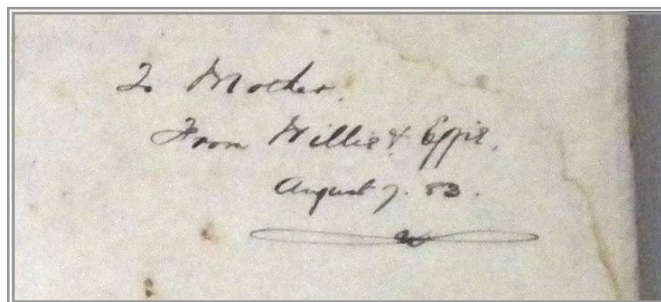 To Mother.
From Willie & Effie.
August 7. 83.